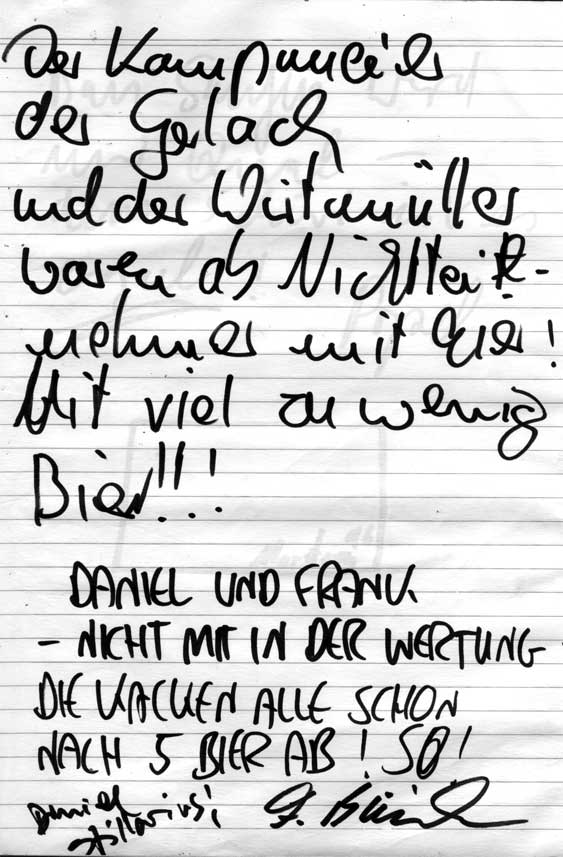 Der Kampmeier
der Gerlach
und der Wistamüller
waren als Nichtteil-
nehmer mit hier!
Mit viel zu wenig
Bier!!!
DANIEL UND FRANK
- NICHT MIT IN DER WERTUNG
DIE KACKEN ALLE SCHON
NACH 5 BIER AB! SO!
Daniel